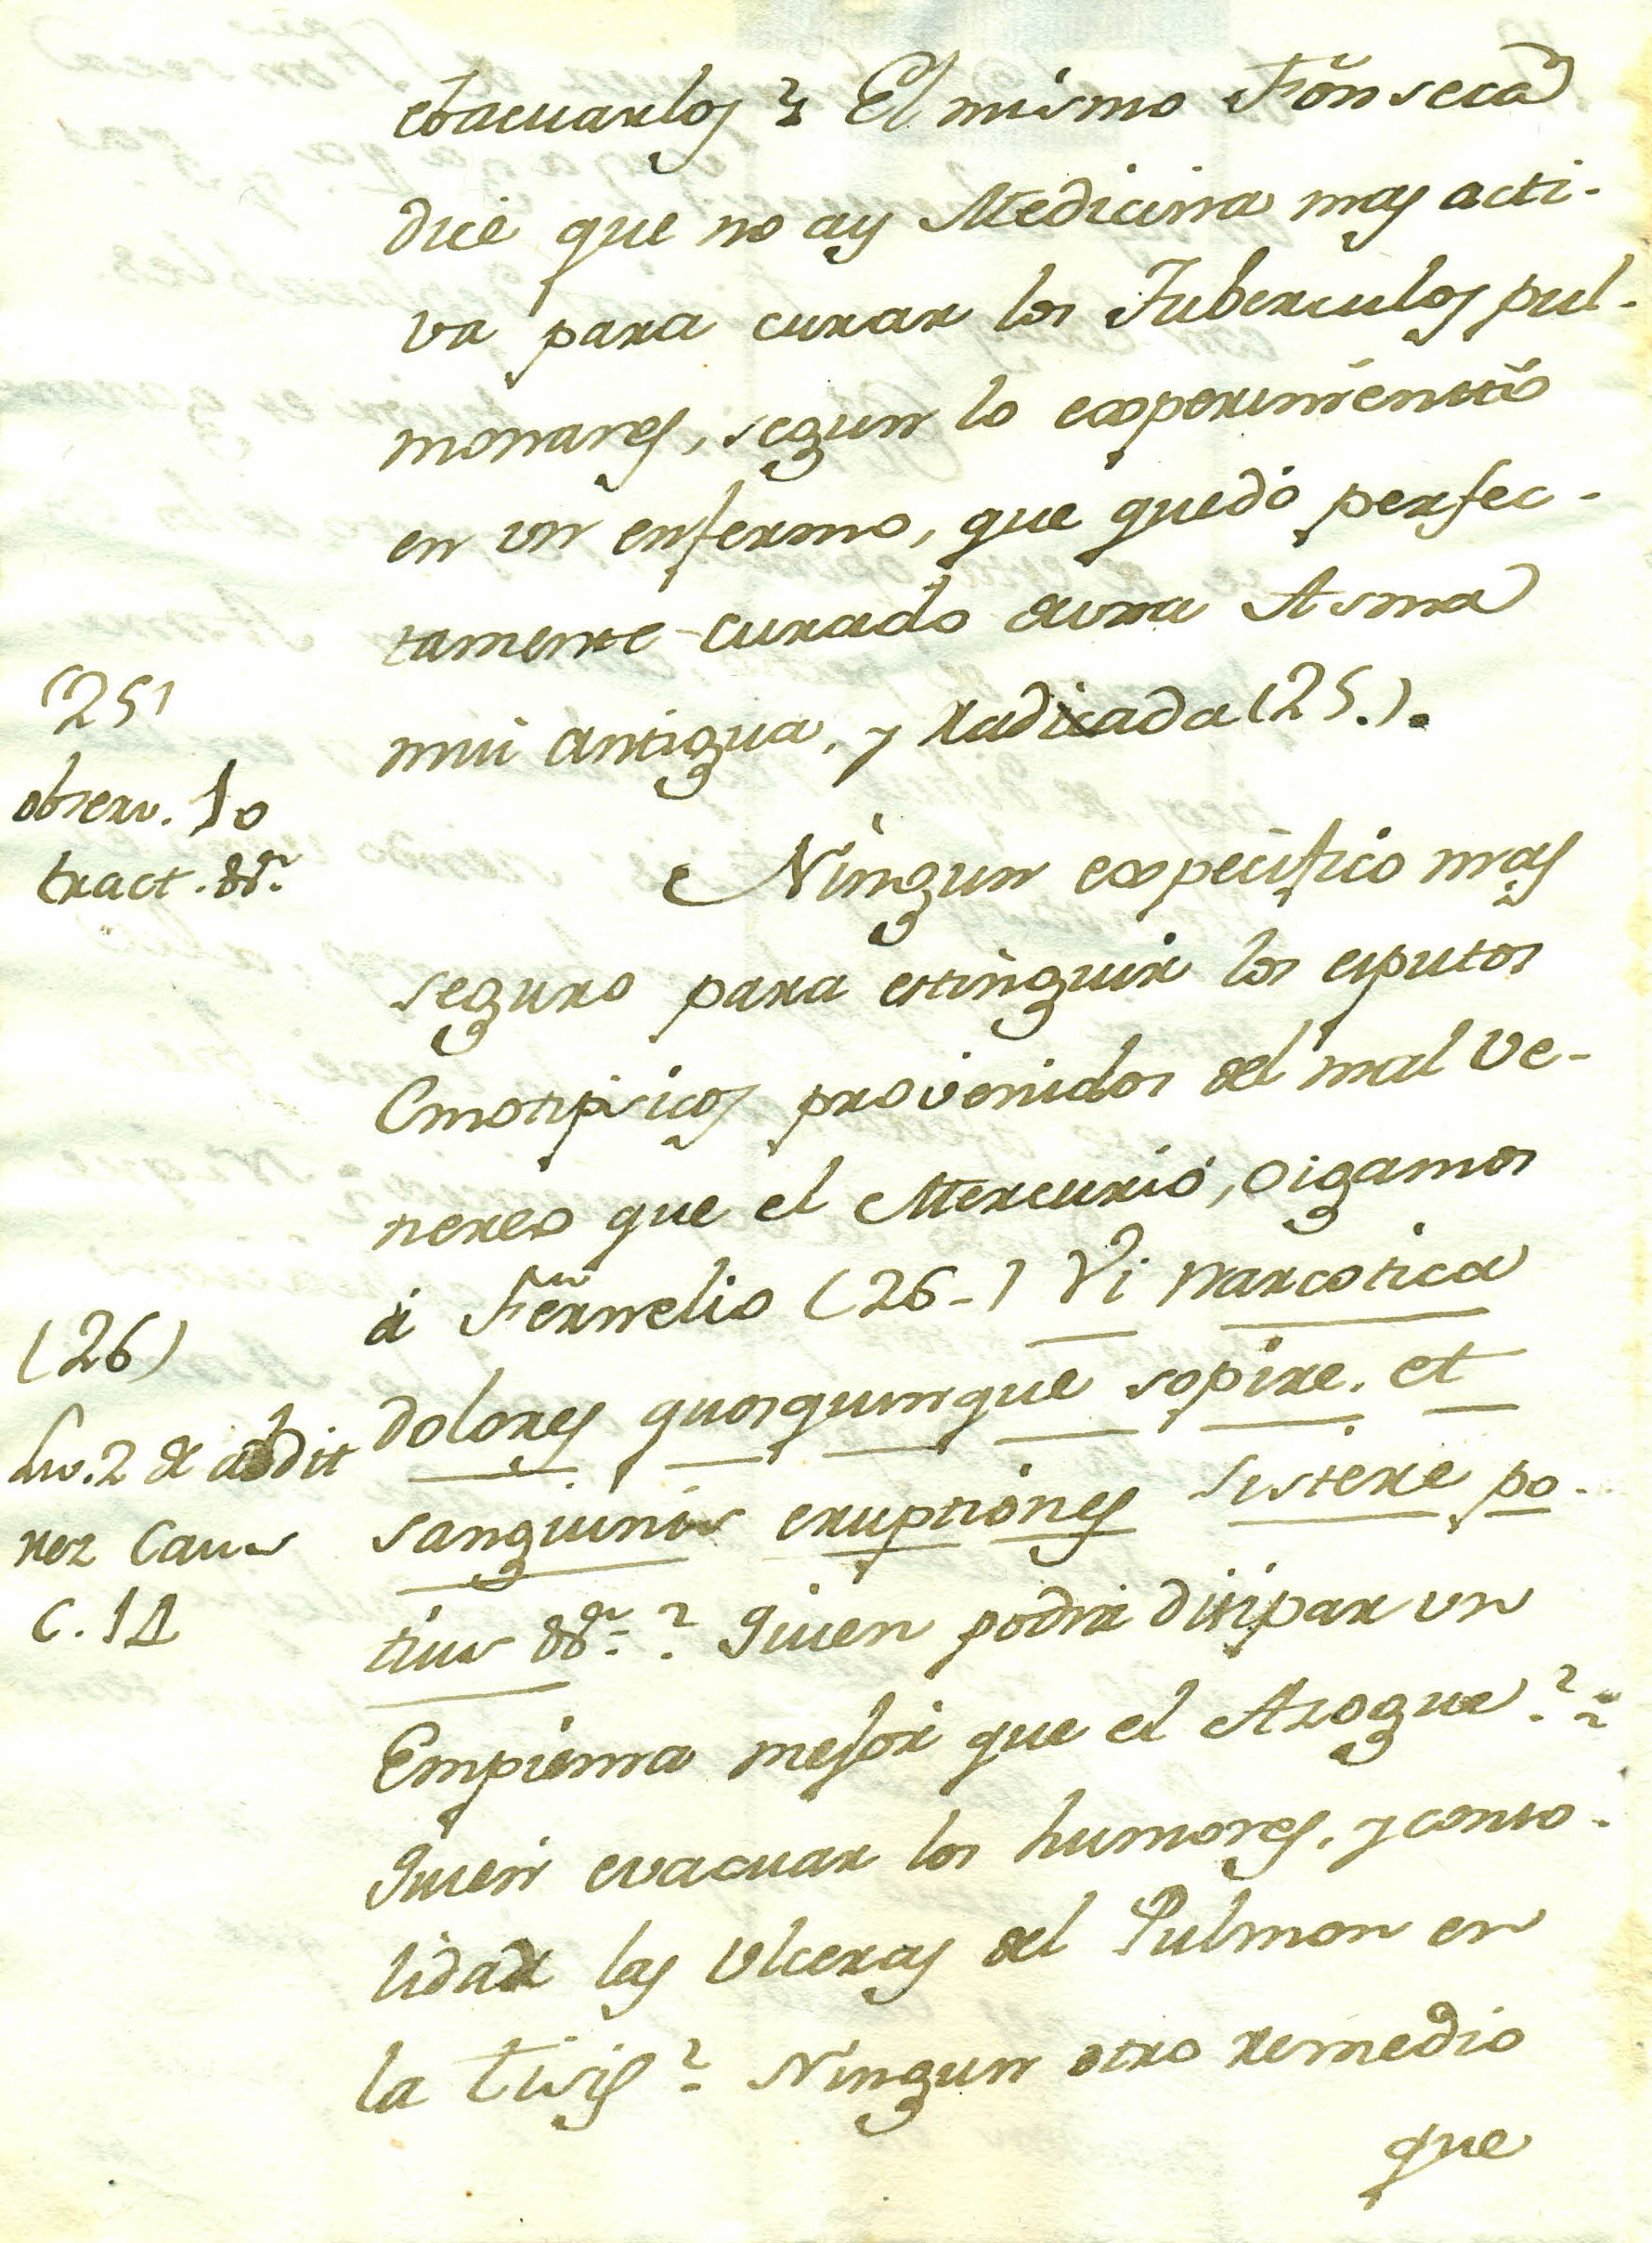 ebacuarlos? El mismo Fonseca
dice que no ay Medicina mas acti-
va para curar los Tuberculos pul-
monares, segun lo experimentó
en un enfermo, que quedò perfec-
tamente curado de una Asma
mui antigua, y radicada (25.).
(25)
observ. 10
tract. &ª.
Ningun expecifico mas
seguro para estinguir los esputos
Emotipsicos provenidos del mal ve-
nereo que el Mercurio, oigamos
à Fernelio (26-) Vi narcotica
dolores quosqumque sopire. et
sanguinis eruptiones sistere po-
tius &ª.? Quien podrà disipar un
Empiema mejor que el Azogue?
Quien evacuar los humores, y conso-
lidar las Ulceras del Pulmon en
la Tisis? Ningun otro remedio
que
(26)
Liv. 2 de abdit
rer Caus
C. 14